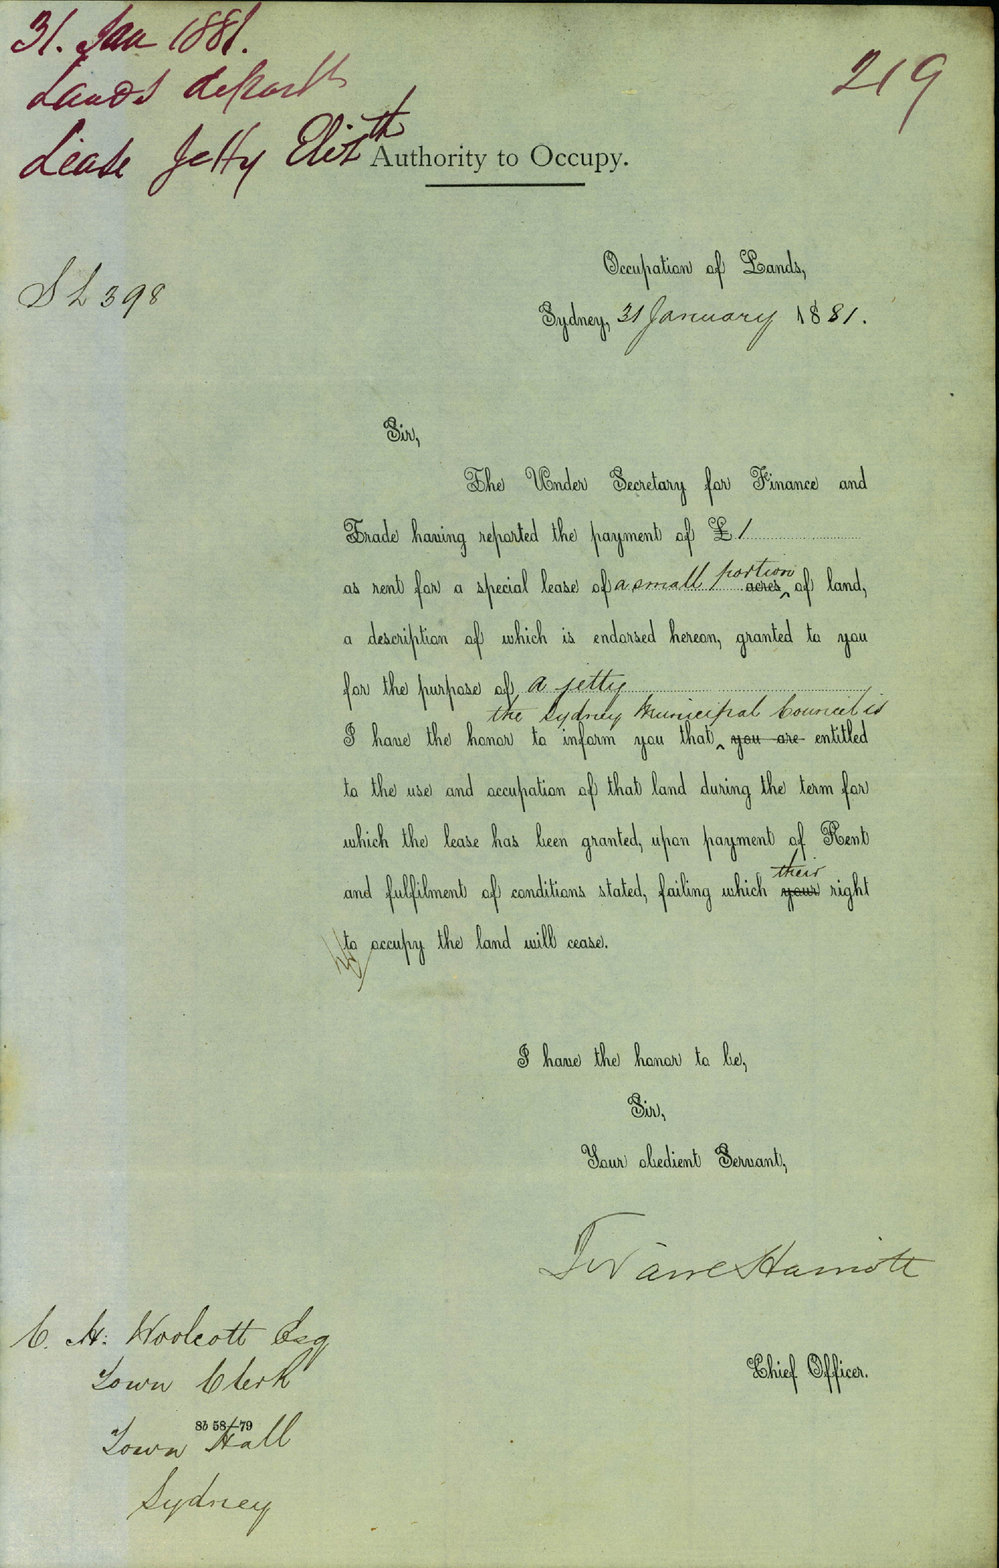 31. Jan 1881.
219
Lands depart
Lease Jetty Elizth
Authority to Occupy.
Occupation of Lands,
S L 398
Sydney, 31 January 1881.
Sir,
The Under Secretary for Finance and
Trade having reported the payment of £ 1
as rent for a special lease of a small portion acres of land,
a description of which is endorsed hereon, granted to you
for the purpose of a jetty
the Sydney Municipal Council is
I have the honor to inform you that you are entitled
to the use and occupation of that land during the term for
which the lease has been granted, upon payment of Rent
their
and fulfilment of conditions stated, failing which your right
to occupy the land will cease.
I have the honor to be,
Sir,
Your obedient Servant,
C. H. Woolcott Esq
Town Clerk
Chief Officer.
8b 58—79
Town Hall
Sydney